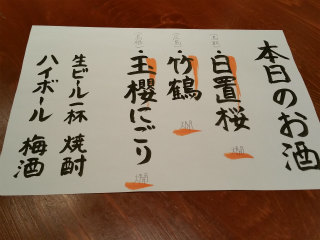 本日のお酒
・日置桜
・竹鶴
・玉櫻にごり
生ビール一杯 焼酎
ハイボール 梅酒